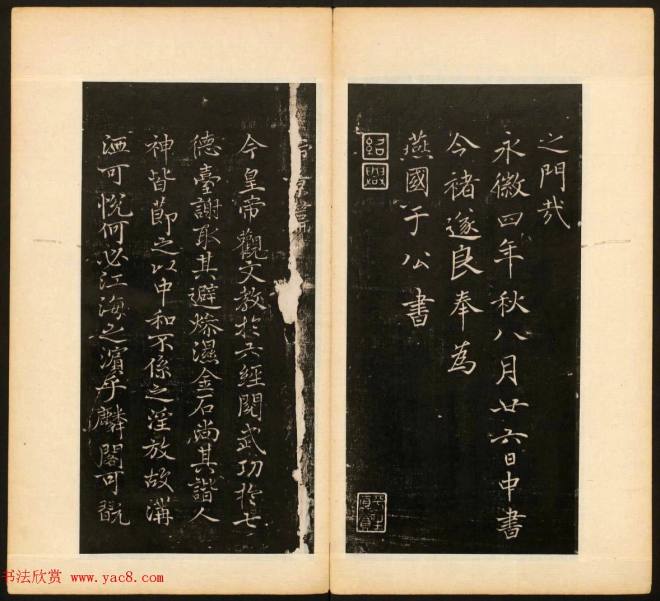 之門哉
永徽四年秋八月廿六日中書
令褚遂良奉為
燕國于公書
紹興
今皇帝觀文教於六經閱武功於七
德臺謝取其避燥濕金石尚其諧人
神皆節之以中和不係之淫放故溝
洫可悅何必江海之濱乎麟閣可翫
书法欣赏 www.yac8.com